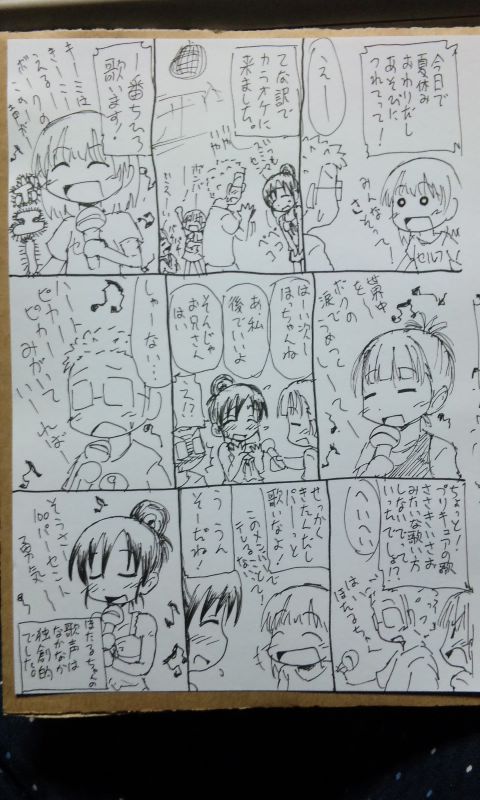 今日で
夏休み
おわりだし
あそびに
つれてって!
みんな
さそって!
セルフ
えー
てな訳で
カラオケに
来ました。
ペコ
ペコ
一番ちひろ
歌います!
キーミーは
きーこーえるー
ボークの
この声が
世界中
を〜
ボクの
涙でうめつくして
はーい次ー
ほたるちゃんね
あ、私
後でいいよ
そんじゃ
お兄さん
はい
え!?
しゃーない…
ハートー
ピカピカ
みがいてれば
9
ちょっと!
プリキュアの歌
ささきいさお
みたいな歌い方
しないで
いいでしょ!?
へいへい
はい
ほたるちゃん
せっかく
きたんだし
パーっと
歌いなよ!
このメンバーで
テレることないって!
う うん
そーだね!
そうさー
100パーセント
勇気〜
ほたるちゃんの
歌声は
なかなか
独創的
でした。